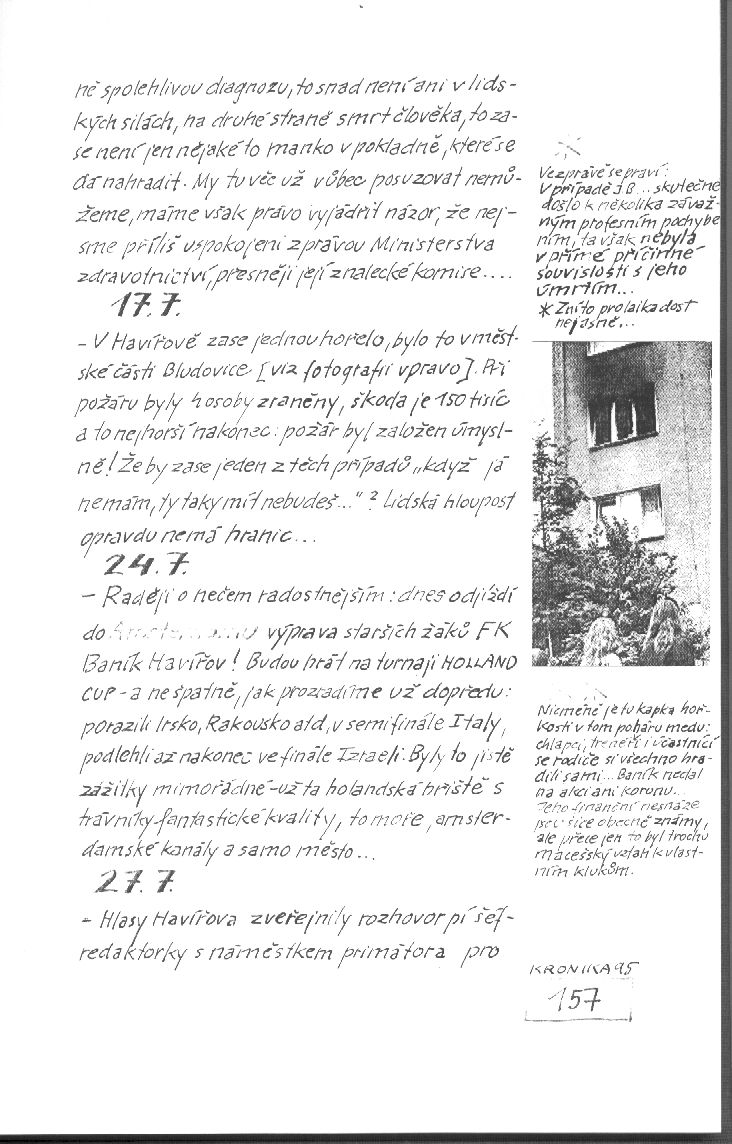 ně spolehlivou diagnozu, to snad není ani v lids-
kých silách, na druhé straně smrt člověka, to za-
se není jen nějaké to manko v pokladně, které se
dá nahradit. My tu věc už vůbec posuzovat nemů-
žeme, máme však právo vyjádřit názor, že nej-
sme příliš uspokojeni zprávou Ministerstva
zdravotnictví, přesněji její znalecké komise....
17.7.
- V Havířově zase jednou hořelo, bylo to v měst-
ské části Bludovice [viz fotografii vpravo]. Při
požáru byly 4 osoby zraněny, škoda je 150 tisíc
a to nejhorší nakonec: požár byl založen úmysl-
ně! Že by zase jeden z těch případů „když já
nemám, ty taky mít nebudeš..." ? Lidská hloupost
opravdu nemá hranic...
24.7.
- Raději o něčem radostnějším: dnes odjíždí
do výprava starších žáků FK
Baník Havířov! Budou hrát na turnaji HOLLAND
CUP - a ne špatně, jak prozradíme už dopředu:
porazili Irsko, Rakousko atd, v semifinále Italy,
podlehli až nakonec ve finále Izraeli. Byly to jistě
zážitky mimořádné - už ta holandská hřiště s
trávníky fantastické kvality, to moře, amster-
damské kanály a samo město...
27.7.
- Hlasy Havířova zveřejnily rozhovor pí šéf-
redaktorky s náměstkem primátora pro
Ve zprávě se praví:
V případě J.B... skutečně
došlo k několika závaž-
ným profesním pochybe
ním, ta však nebyla
v přímé příčinné
souvislosti s jeho
úmrtím...
* Zní to pro laika dost
nejasně...
Nicméně je tu kapka hoř-
kosti v tom poháru medu:
chlapci, trenéři i účastnící
se rodiče si všechno hra-
dili sami... Baník nedal
na akci ani korunu...
Jeho finanční nesnáze
jsou sice obecně známy,
ale přece jen to byl trochu
macešský vztah k vlast-
ním klukům.
KRONIKA 95
157